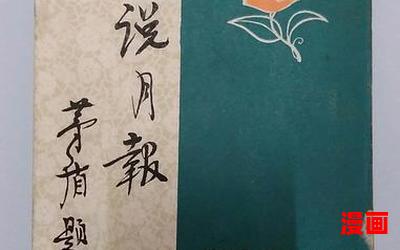 说月報
茅盾题
漫画